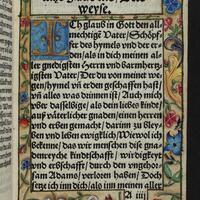 weyse.
Ich glaub in Gott den all⸗
mechtigē Vater/ Schöpf⸗
fer des hymels vnd der er⸗
den/ als in dich meinen al⸗
ler gnedigsten Herrn vnd barmhertz⸗
igsten Vater/ Der du von meinet we⸗
gen/ hymel vñ erden geschaffen hast/
vñ alles was drinnen ist/ Auch mich
vber dasselbige/ als dein liebes kindt
auß väterlicher gnaden/ einen herren
vnd erben gemacht/ darinn zu
vnd leben ewigklich/ Wiewol ich
bekenne/ das wir menschen dise gna⸗
denreyche kindtschafft/ wirdigkeyt
vnd erbschafft/ durch den vngehor⸗
sam Adams/ verloren haben/ Doch
setz ich in dich/ als inn meinen aller
A iiij